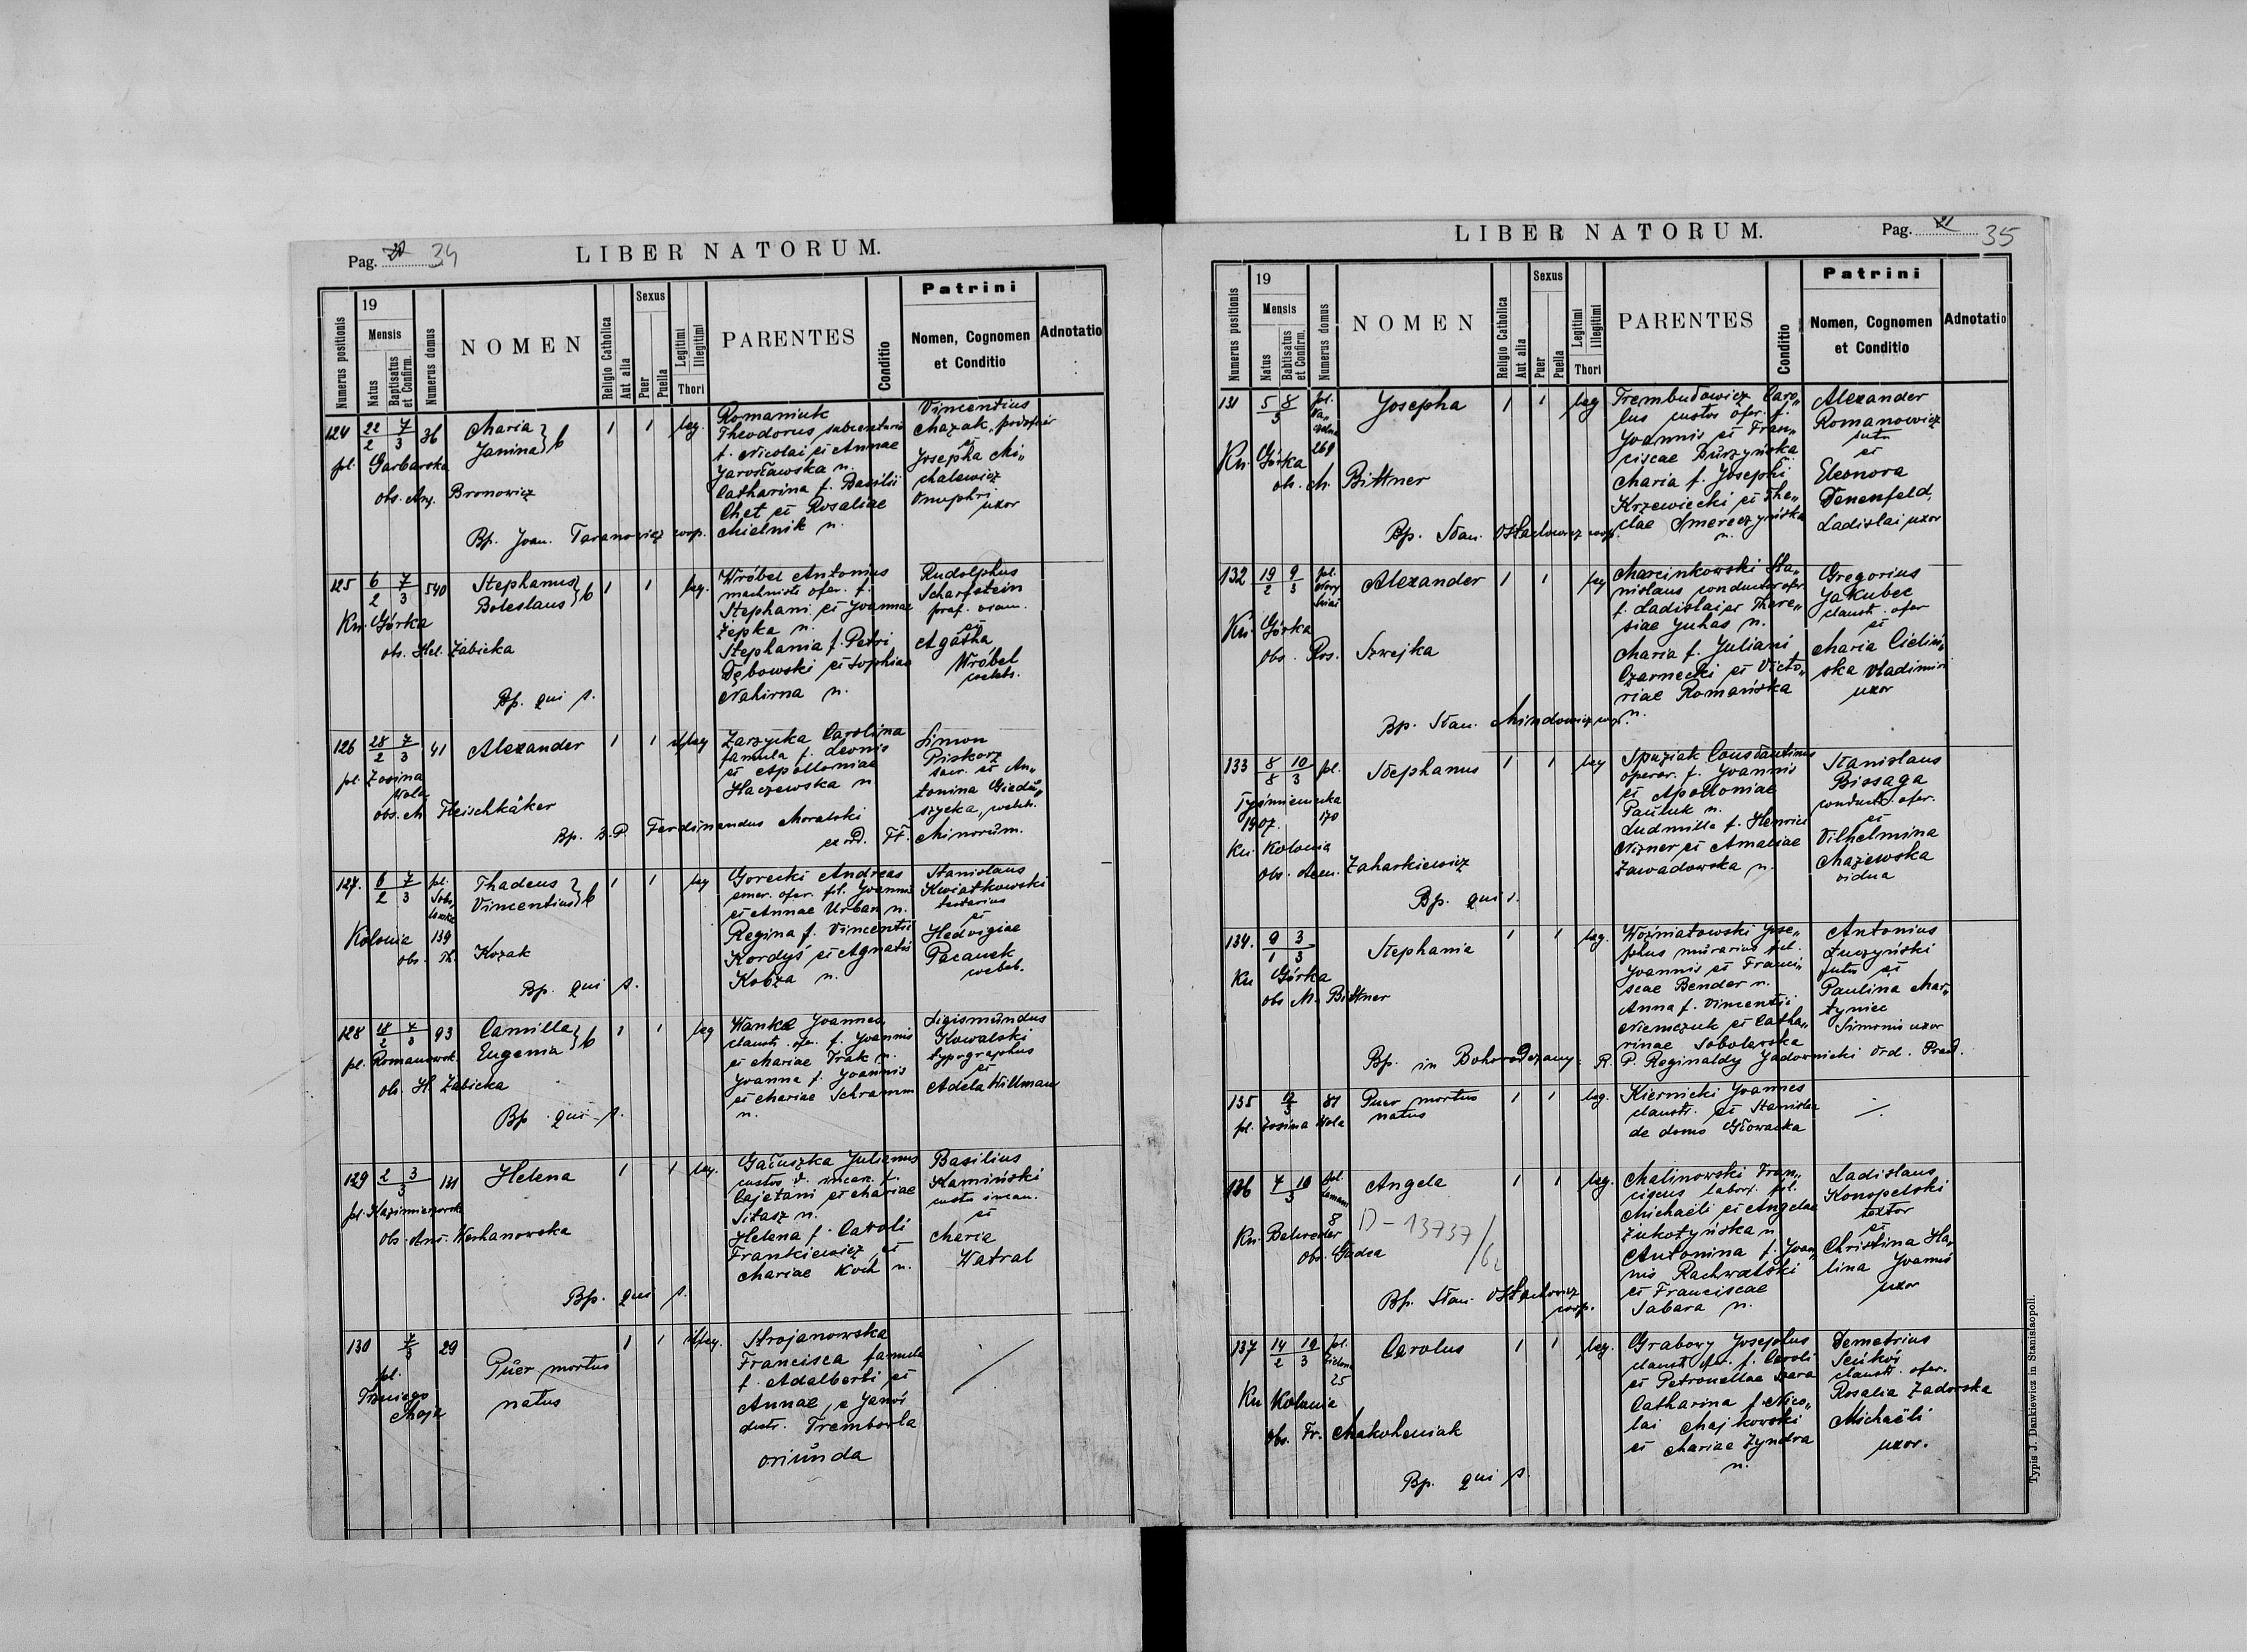 Pag. 34
LIBER NATORUM.
Numerus positionis
19
Mensis
Natus
Baptisatus et Confirm.
Numerus domus
NOMEN
Religio Catholica
Aut alia
Sexus
Puer
Puella
Legitimi
Illegitimi
Thori
PARENTES
Conditio
Patrini
Nomen, Cognomen
et Conditio
Adnotatio
124 22/2 7/3 36 Maria Janina } b 1 1 leg.
pl. Garbarska
obs. Bronowicz
Bp. Joan. Taranowicz coop.
Romaniuk
Theodorus
f. Nicolai et Annae
Jarosławska n.
Catharina f. Basilii
Chet et Rosaliae
Mielnik n.
Vincentius
Mazak
et
Josepha Mi„
chalewicz
Onuphri
uxor
125 6/2 7/3 540 Stephanus Boleslaus } b 1 1 leg.
Kn. Górka
obs. Hel. Żabicka
Bp. qui s.
Wróbel Antonius
machnista ofer. f.
Stephani et Joannae
Zępka n.
Stephania f. Petri
Dębowski et Sophiae
Nahirna n.
Rudolphus
Scharfstein
et
Agatha
Wróbel
126 28/2 7/3 41 Alexander 1 1 illeg.
pl. Zosina
Wola
obs. M. Fleischhäker
Bp. R. P. Ferdinandus Moralski
ex ord. FF. Minorum.
Zarzycka Carolina
famula f. Leonis
et Apolloniae
Haczewska n.
Simon
Piskorz
et An„
tonina
127. 6/2 7/3 139 Thadeus Vincentius } b 1 1 leg.
Kolonia
obs. Kozak
Bp. qui s.
Gorecki Andreas
ofer. fil. Joannis
et Annae Urban n.
Regina f. Vincentii
Kordyś et Agnetis
Kobza n.
Stanislaus
Kwiatkowski
et
Hedvigiae
Pacanek
128 18/2 7/3 93 Camilla Eugenia } b 1 1 leg.
pl. Romanowsk.
obs. H. Żabicka
Bp. qui s.
Wanke Joannes
ofer. f. Joannis
et Mariae Trak n.
Joanna f. Joannis
et Mariae Schramm
n.
Sigismundus
Kowalski
typographus
et
Adela Willmann
129 2 3/3 131 Helena 1 1 leg.
pl. Kazimierzowska
obs. Ant. Werhanowska
Bp. qui s.
Gałuszka Julianus
custos
Cajetani et Mariae
Sitasz n.
Helena f. Caroli
Frankiewicz et
Mariae Koch n.
Basilius
Kamiński
et
Maria
Watral
130 7/3 29 Puer mortus natus 1 1 illeg.
pl.
Trzeciego
Maja
Strojanowska
Francisca famula
f. Adalberti et
Annae, e Janów
distr. Trembowla
oriunda
Pag. 35
LIBER NATORUM.
Numerus positionis
19
Mensis
Natus
Babtisatus et Confirm.
Numerus domus
NOMEN
Religio Catholica
Aut alia
Sexus
Puer
Puella
Legitimi
Illegitimi
Thori
PARENTES
Conditio
Patrini
Nomen, Cognomen
et Conditio
Adnotatio
131 5 8/3 269 Josepha 1 1 leg
Kn. Górka
obs. M. Bittner
Bp. Stan. Ostachowicz coop.
Trembułowicz Caro„
lus custos ofer. f.
Joannis et Fran„
ciscae Burzyńska
Maria f. Josephi
Krzewiecki et The„
clae Smereczyńska
n.
Alexander
Romanowicz
sutor
et
Eleonora
Denenfeld,
Ladislai uxor
132 19/2 9/3 Alexander 1 1 leg
Kn. Górka
obs. Ros. Szwejka
Bp. Stan. Mindowicz coop.
Marcinkowski Sta„
nislaus conductor ofer
f. Ladislai et There„
siae Juhas n.
Maria f. Juliani
Czarnecki et Victo„
riae Romańska
n.
Gregorius
Jakubec
claustr. ofer
et
Maria Cieliń„
ska Vladimiri
uxor
133 8/8 10/3 pl. Stephanus 1 1 leg
Tyśmienicka
1907. 170
Kn. Kolonia
obs. Zaharkiewicz
Bp. qui s.
Spuziak Constantinus
operar. f. Joannis
et Apolloniae
Pauluk n.
Ludmilla f. Henrici
Nizner et Amaliae
Zawadowska n.
Stanislaus
Bissaga
conduct. ofer.
et
Vilhelmina
Mazewska
vidua
134. 9/1 3/3 Stephania 1 1 leg.
Kn Górka
obs M. Bittner
Bp. in Bohorodczany: R. P. Reginaldy Jadownicki Ord. Praed.
Woźniatowski Jose„
phus murarius fil.
Joannis et Franci„
scae Bender n.
Anna f. Vincentii
Niemczuk et Catha„
rinae Sobolewska
Antonius
Łuczyński
sutor et
Paulina Mar„
tyniec
Simonis uxor
135 9/3 81 Puer mortus natus 1 1 leg.
pl. Zosina Wola
Kiernicki Joannes
claustr. et Stanislaa
de domo Głowacka
136 7 10/3 8 Angela 1 1 leg.
Kn. Belweder
obs. Gadea
D-13737/62
Bp. Stan. Ostachowicz
coop.
Malinowski Fran„
ciscus labor. fil.
Michaëli et Angelae
Żukotyńska n
Antonina f. Joan„
nis Rachwalski
et Franciscae
Sabara n.
Ladislaus
Konopelski
textor
et
Christina Ha„
lina Joannis
uxor
137 14/2 10/3 25 Carolus 1 1 leg.
Kn Kolonia
obs. Fr. Makoheniak
Bp. qui s.
Grabowy Josephus
claustr. ofer. f. Caroli
et Petronellae
Catharina f. Nico„
lai Majkowski
et Mariae Zyndra
n.
Demetrius
Seńków
claustr. ofer.
Rosalia Zadorska
Michaëli
uxor.
Typis J. Dankiewicz in Stanislaopoli.